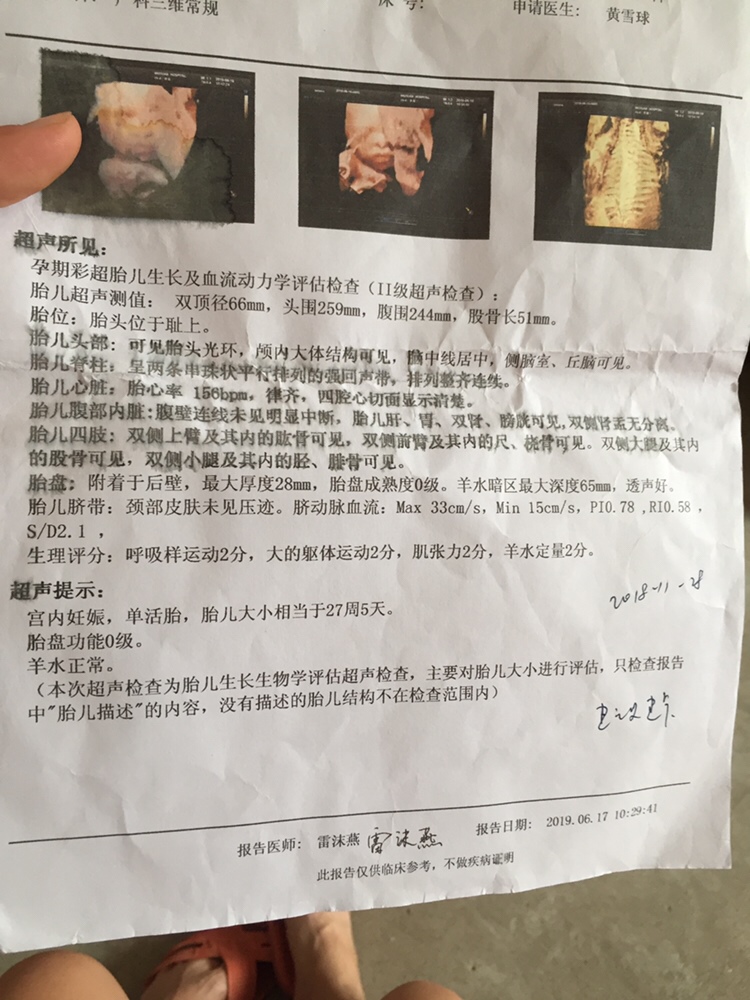 产科三维常规
床 号:
申请医生: 黄雪球
超声所见:
孕期彩超胎儿生长及血流动力学评估检查（II级超声检查）:
胎儿超声测值: 双顶径66mm, 头围259mm, 腹围244mm, 股骨长51mm。
胎位: 胎头位于耻上。
胎儿头部: 可见胎头光环, 颅内大体结构可见, 脑中线居中, 侧脑室、丘脑可见。
胎儿脊柱: 呈两条串珠状平行排列的强回声带, 排列整齐连续。
胎儿心脏: 胎心率 156bpm, 律齐, 四腔心切面显示清楚。
胎儿腹部内脏: 腹壁连线未见明显中断, 胎儿肝、胃、双肾、膀胱可见, 双侧肾盂无分离。
胎儿四肢: 双侧上臂及其内的肱骨可见, 双侧前臂及其内的尺、桡骨可见。双侧大腿及其内
的股骨可见, 双侧小腿及其内的胫、腓骨可见。
胎盘: 附着于后壁, 最大厚度28mm, 胎盘成熟度0级。羊水暗区最大深度65mm, 透声好。
胎儿脐带: 颈部皮肤未见压迹。脐动脉血流: Max 33cm/s, Min 15cm/s, PI0.78 ,RI0.58 ,
S/D2.1 ,
生理评分: 呼吸样运动2分, 大的躯体运动2分, 肌张力2分, 羊水定量2分。
超声提示:
宫内妊娠, 单活胎, 胎儿大小相当于27周5天。
2018-11-28
胎盘功能0级。
羊水正常。
（本次超声检查为胎儿生长生物学评估超声检查, 主要对胎儿大小进行评估, 只检查报告
中"胎儿描述"的内容, 没有描述的胎儿结构不在检查范围内）
报告医师: 雷沫燕 雷沫燕 报告日期: 2019.06.17 10:29:41
此报告仅供临床参考, 不做疾病证明